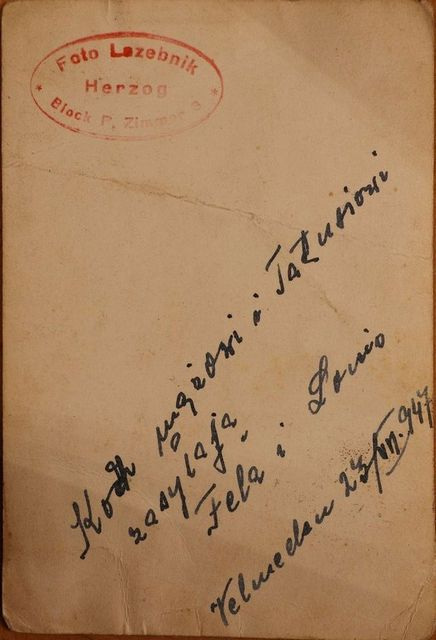 Foto Lazebnik
Herzog
* Block P. Zimmer 3 *
Koch mężowi i Tatusiowi
zasyłają
Fela i Lonio
Velmeden 23/VII.947